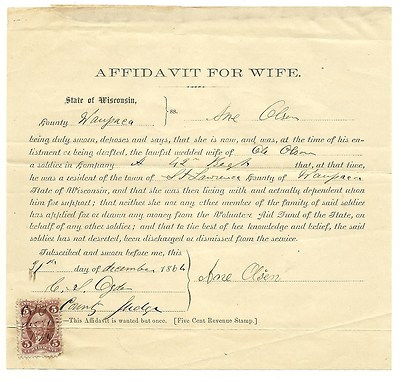 AFFIDAVIT FOR WIFE.
State of Wisconsin,
County Waupaca } ss. Ane Olsen
being duly sworn, deposes and says, that she is now, and was, at the time of his en-
listment or being drafted, the lawful wedded wife of Ole Olsen
a soldier in Company A 42 Regt that, at that time,
he was a resident of the town of St Lawrence County of Waupaca
State of Wisconsin, and that she was then living with and actually dependent upon
him for support; that neither she nor any other member of the family of said soldier
has applied for or drawn any money from the Volunteer Aid Fund of the State, on
behalf of any other soldier; and that to the best of her knowledge and belief, the said
soldier has not deserted, been discharged or dismissed from the service.
Subscribed and sworn before me, this
21st day of december 1864 Ane Olsen
C. S. Ogden
County Judge
—This Affidavit is wanted but once. [Five Cent Revenue Stamp.]
5 5
5 5